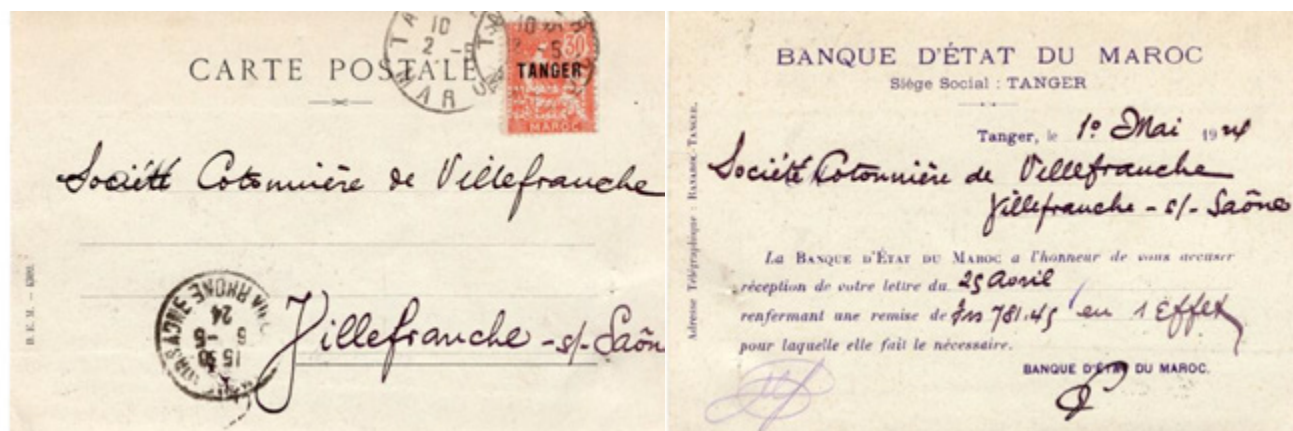 CARTE POSTALE
30
TANGER
MAROC
Société Cotonnière de Villefranche
Villefranche -s/- Saôn
B. E. M. —
15 30
6 -5
24
BANQUE D'ÉTAT DU MAROC
Siège Social : TANGER
Tanger, le 1º Mai 1924
Société Cotonnière de Villefranche
Villefranche -s/- Saône
Adresse Télégraphique : -TANGER.
La BANQUE D'ÉTAT DU MAROC a l'honneur de vous accuser
réception de votre lettre du 25 Avril
renfermant une remise de frs 781.45 en 1 Effet
pour laquelle elle fait le nécessaire.
BANQUE D'ÉTAT DU MAROC.